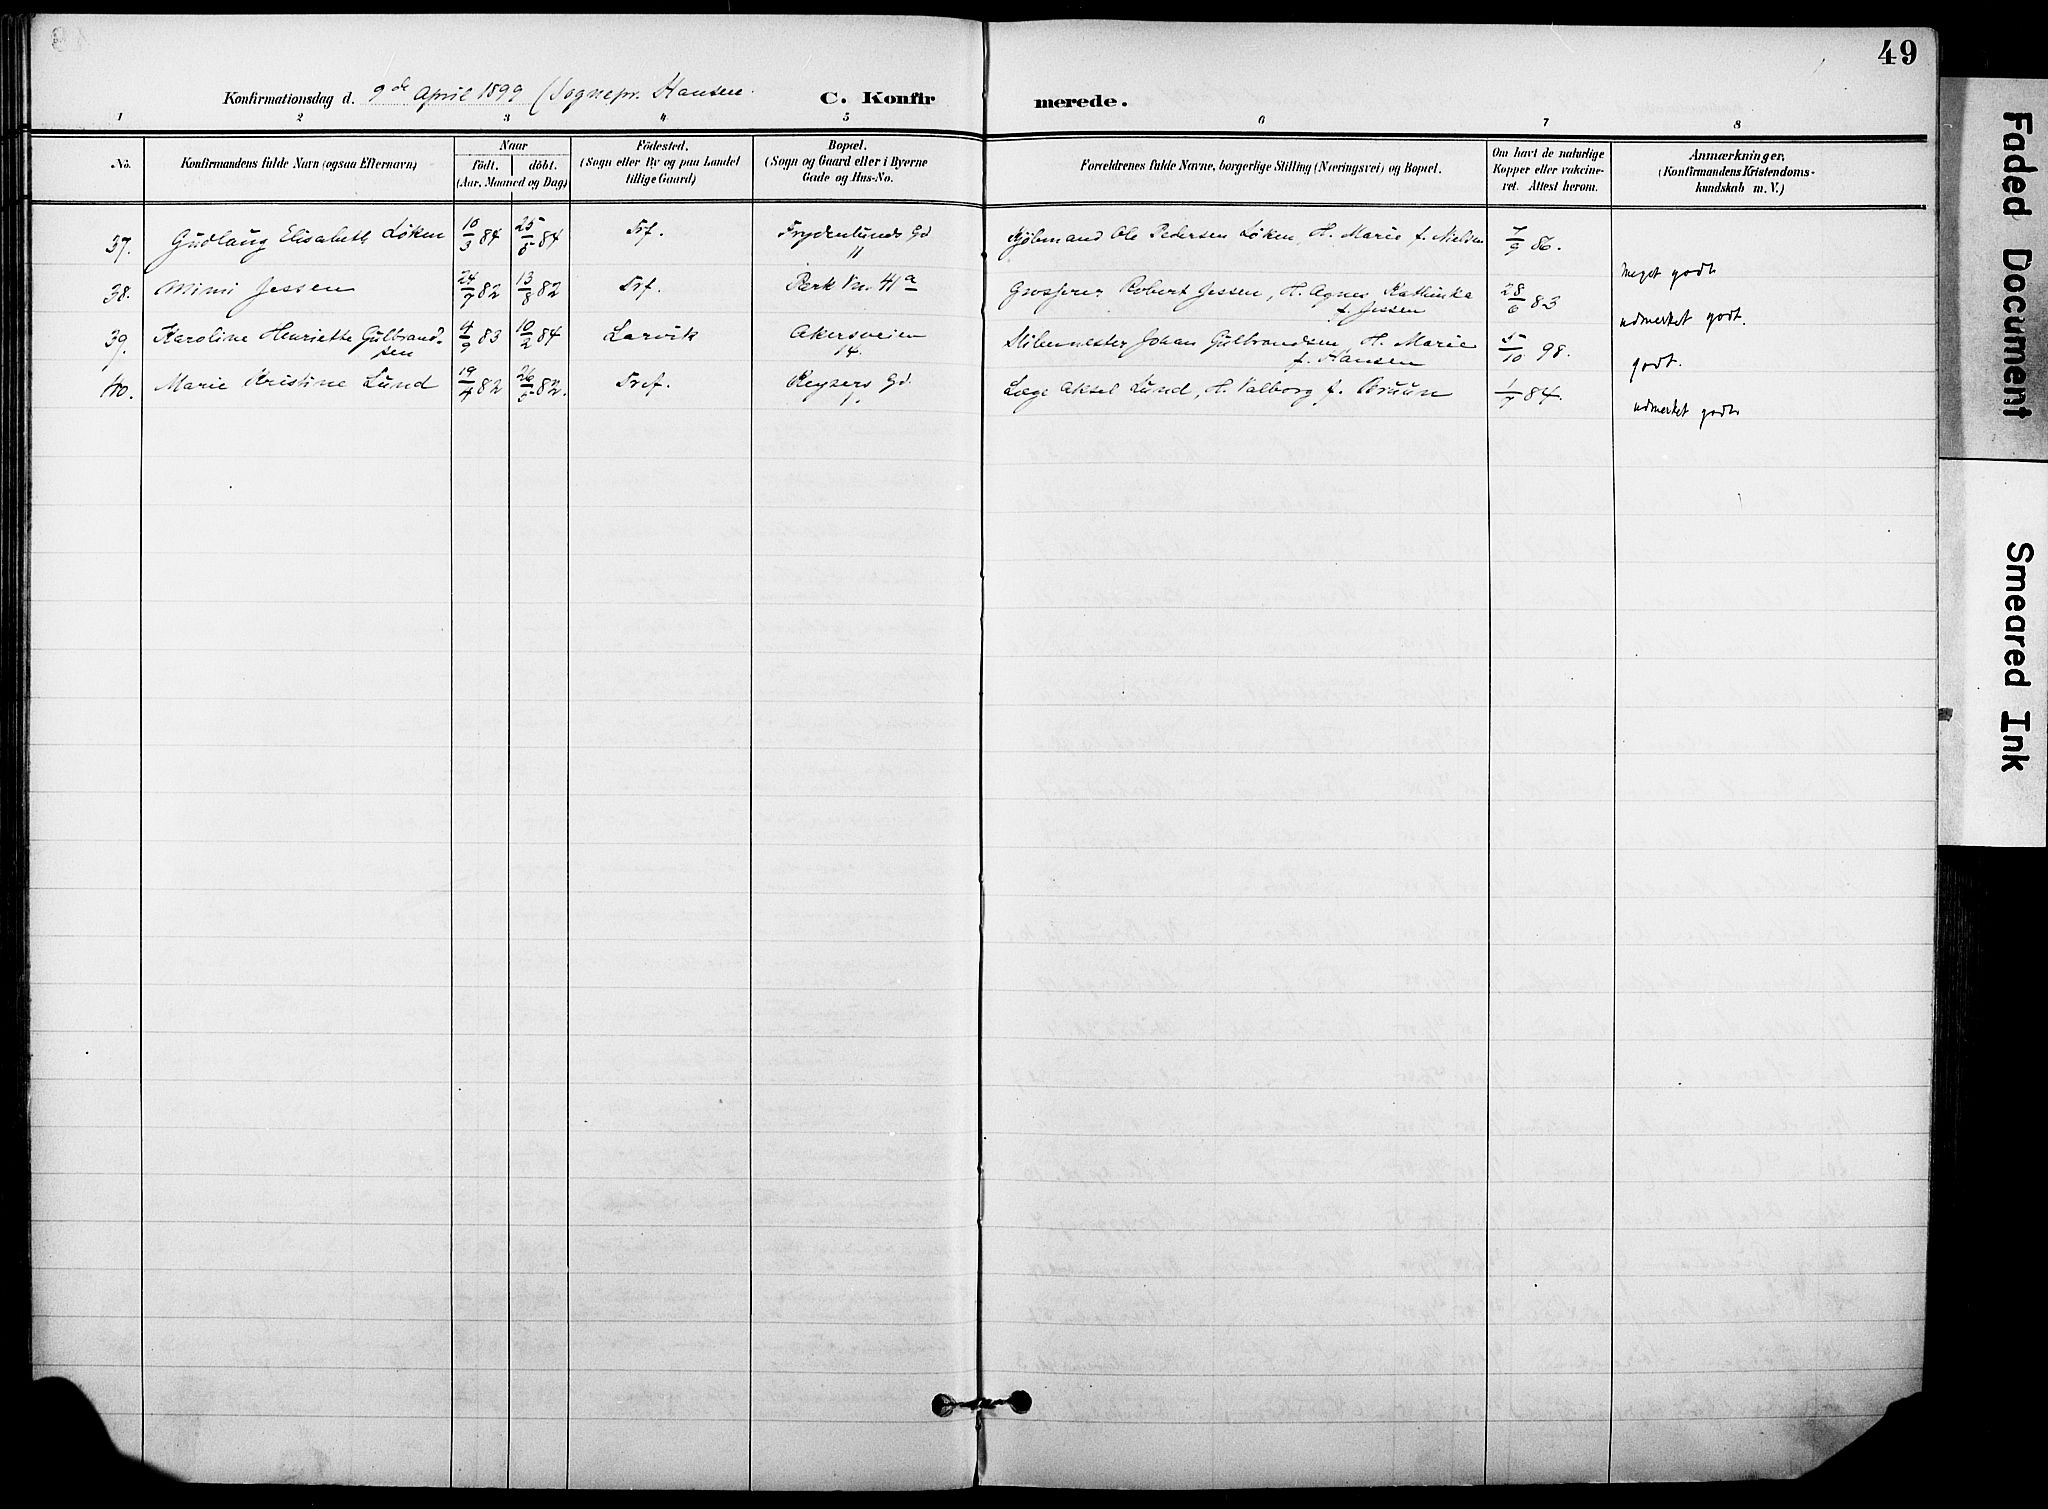 49
Konfirmationsdag d. 9de April 1899 (Sognepr. Hansen. C. Konfir merede.
1 2 3 4 5 6 7 8
No. Konfirmandens fulde Navn (ogsaa Efternavn) Naar födt. döbt. (Aar, Maaned og Dag) Födested. (Sogn eller By og paa Landet tillige Gaard) Bopæl. (Sogn og Gaard eller i Byerne Gade og Hus-No. Forældrenes fulde Navne, borgerlige Stilling (Næringsvei) og Bopæl. Om havt de naturlige Kopper eller vakcineret. Attest herom. Anmærkninger. (Konfirmandens Kristendomskundskab m. V.)
37. Gudlaug Elisabeth Løken 10/3 84 25/5 84 Trf. Frydenlunds Gd 11 Kjøbmand Ole Pedersen Løken, H. Marie f. Nielsen 7/9 86. meget godt
38. Mimi Jessen 24/7 82 13/8 82 Trf. Park Vn. 41a Grosserer Robert Jessen, H. Agnes Kathinka f. Jessen 28/6 83 udmerket godt.
39. Karoline Henriette Gulbrandsen 4/9 83 10/2 84 Larvik Akersveien 14. Stibermester Johan Gulbrandsen, H. Marie f. Hansen 5/10 98. godt.
40. Marie Kristine Lund 19/4 82 26/5 82. Tref. Keysers Gd. Læge Aksel Lund, H. Valborg f. Bruun 1/7 84. udmerket godt
Faded Document
Smeared Ink